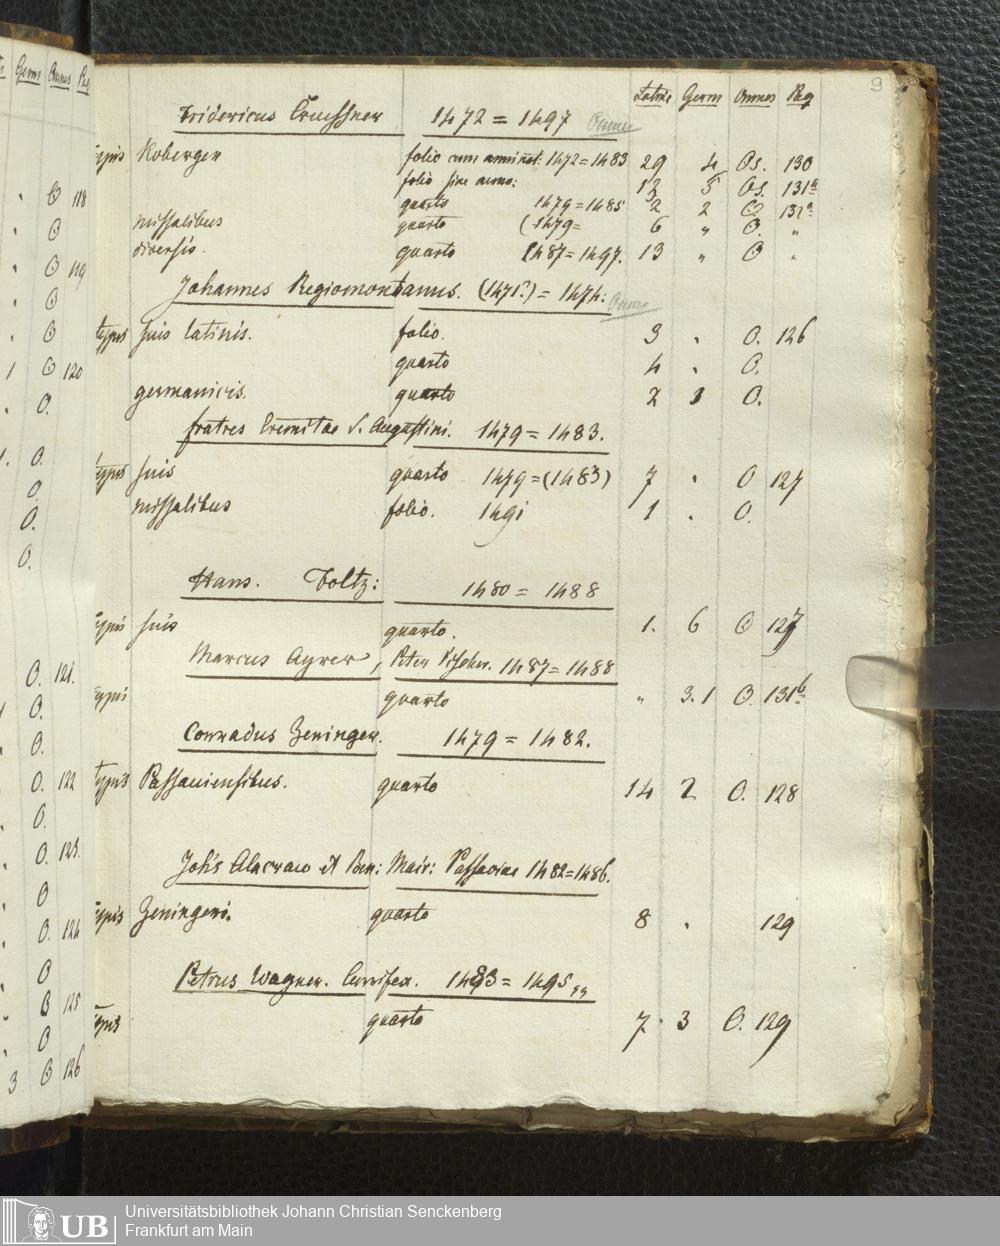 Germ Omnes Pag
O 118
O
O 119
O
O
1 O 120
O.
O.
O
O.
O.
O. 121.
O.
O.
O. 122
O.
O. 123.
O
O. 124
O
O 125
O
3 O 126
9
Latine Germ Omnes Pag
Fridericus Creussner 1472 = 1497 Omnes
typis Koberger folio cum anni not: 1472=1483 29 4 Os. 130
folio sine anno: 12 5 Os. 131a
quarto 1479=1485 2 2 O 131a
missalibus quarto (1479= 6 " O. "
diversis. quarto 1487=1497. 13 " O "
Johannes Regiomontanus. (1471?) = 1474: Omnes
typis suis latinis. folio. 3 . O. 126
quarto 4 . O.
germanicis. quarto 2 1 O.
fratres Eremitae S. Augustini. 1479 = 1483.
typis suis quarto 1479 = (1483) 7 . O 127
missalibus folio. 1491 1 . O.
Hans. Foltz: 1480 = 1488
typis suis quarto. 1. 6 O 127
Marcus Ayrer, Peter Vischer. 1487 = 1488
typis quarto " 3.1 O. 131b
Conradus Zeninger. 1479 = 1482.
typis Passauiensibus. quarto 14 2 O. 128
Johs Alacraw et Ben: Mair: Passaviae 1482=1486.
typis Zeningeri. quarto 8 . 129
Petrus Wagner. Currifex. 1483 = 1495
typis quarto 7. 3 O. 129
UB Universitätsbibliothek Johann Christian Senckenberg
Frankfurt am Main